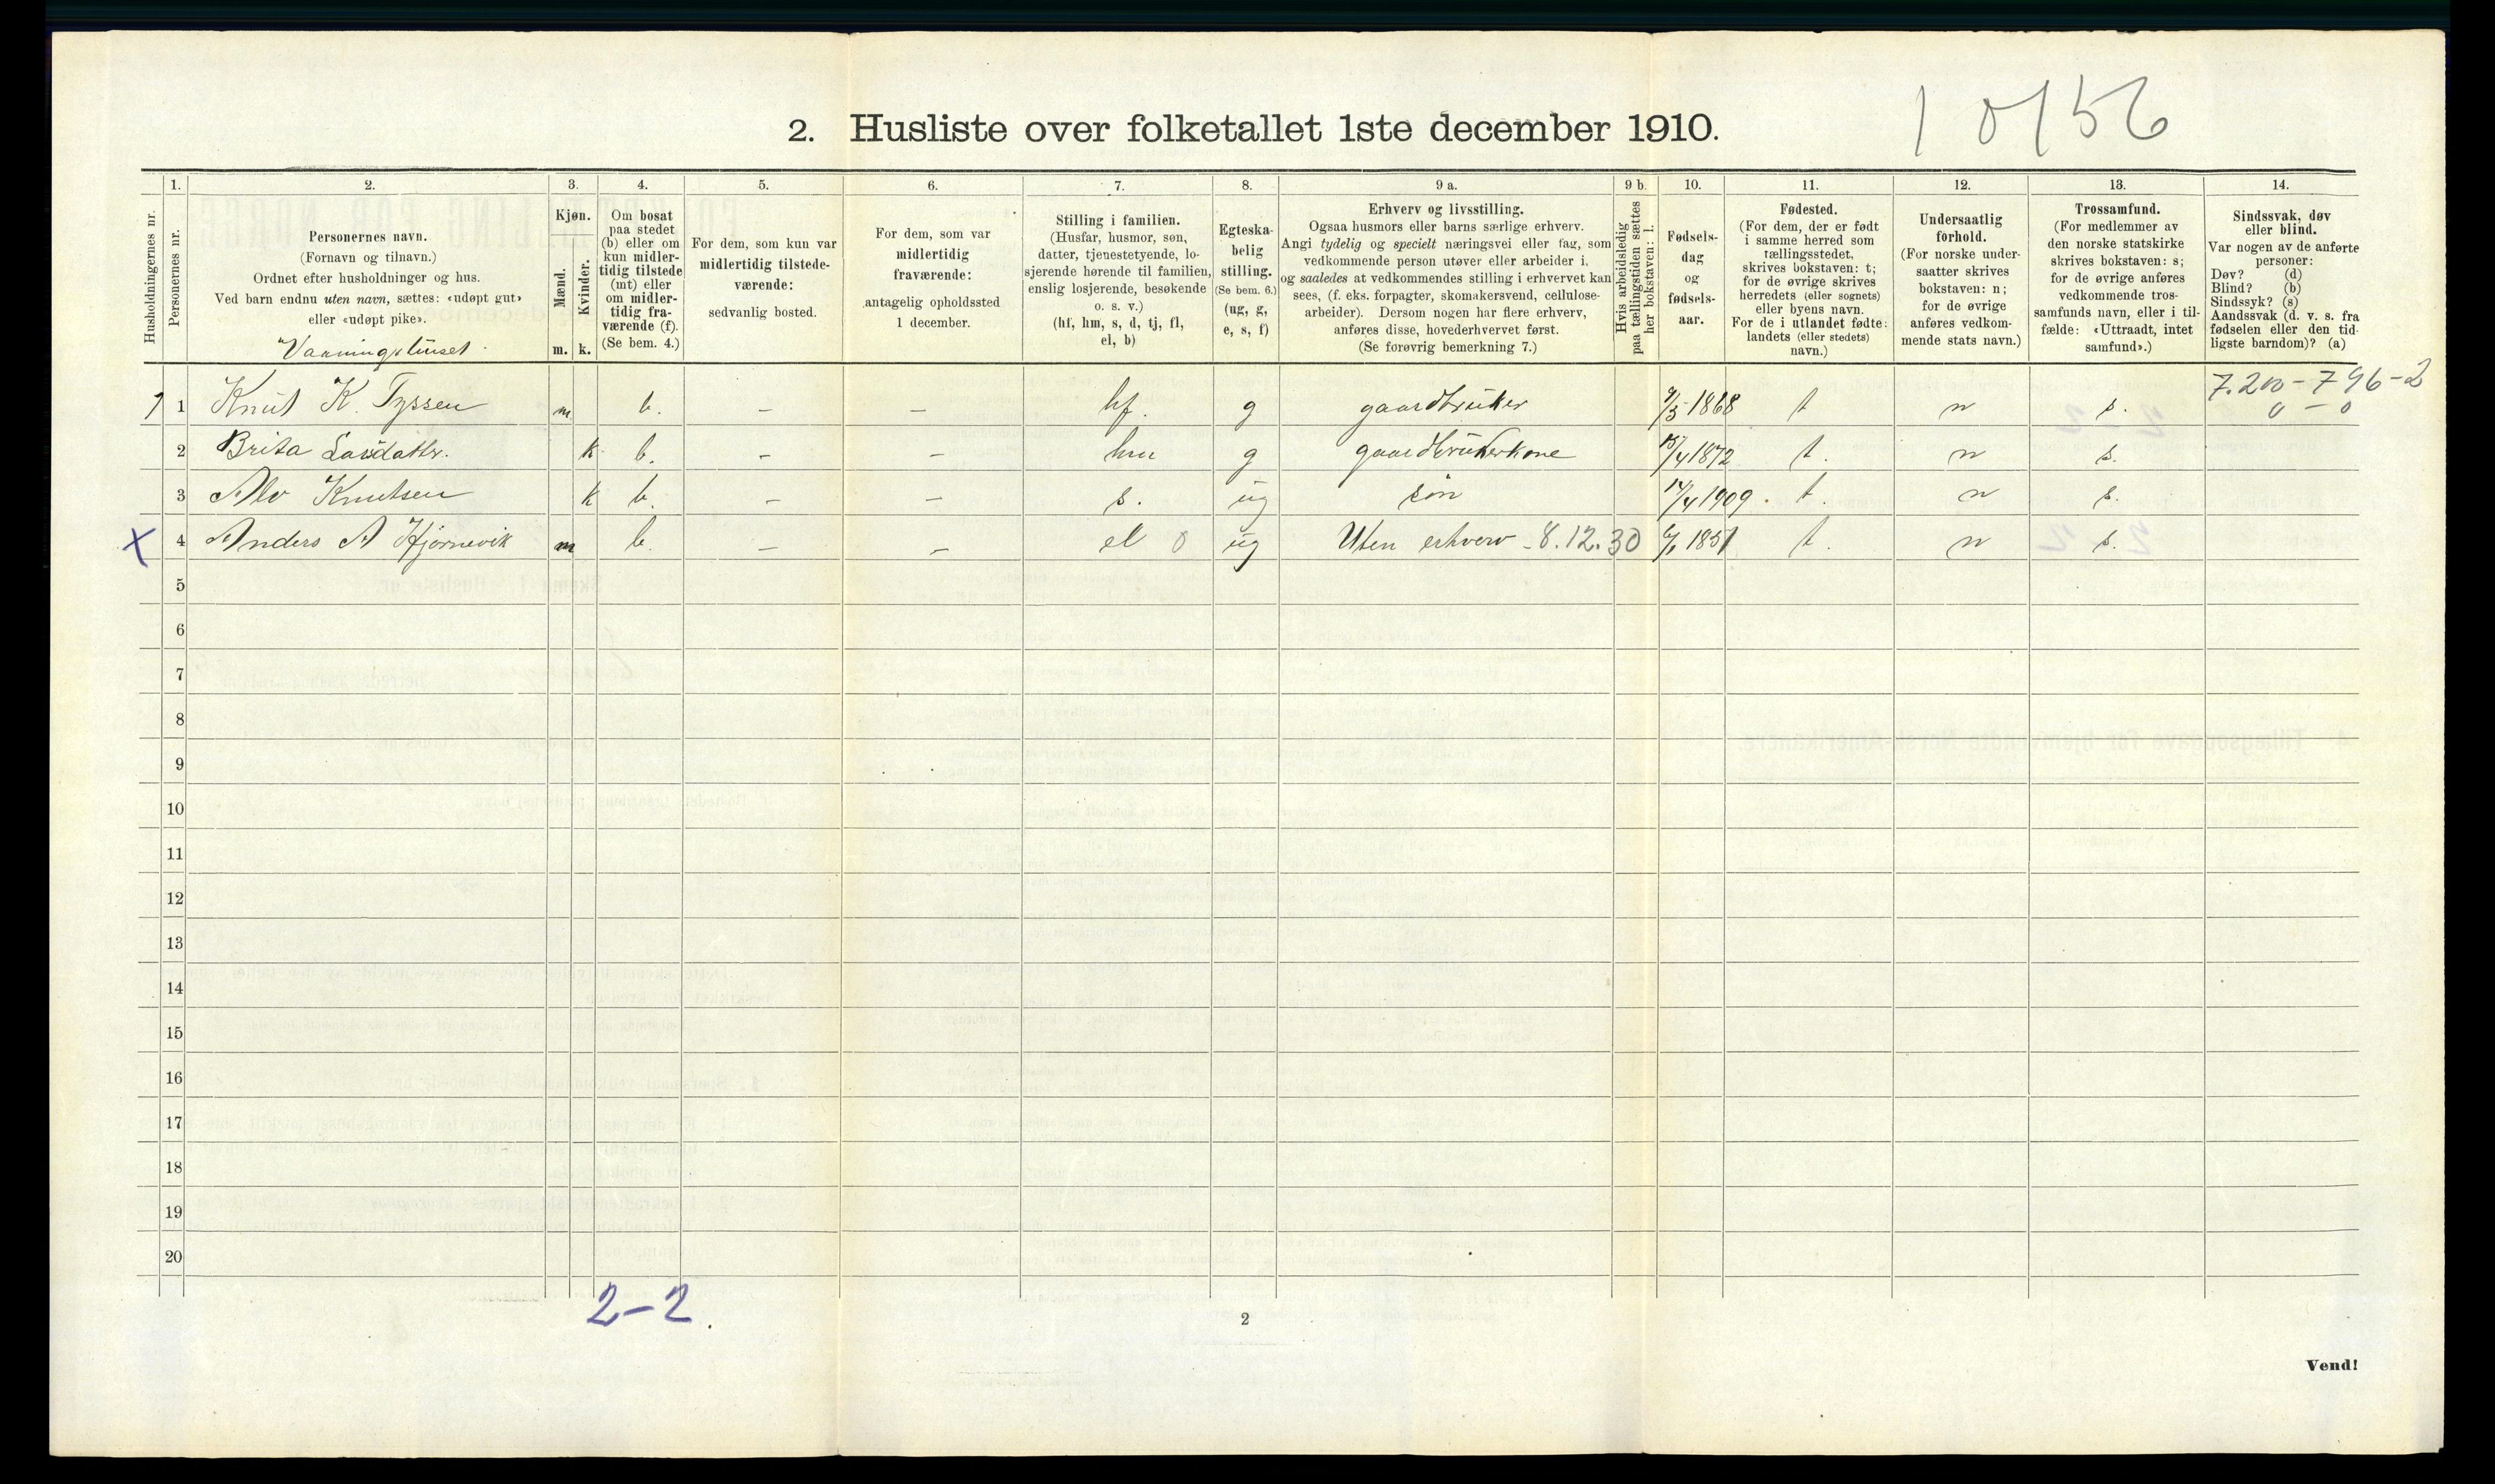 10156
2. Husliste over folketallet 1ste december 1910.
Husholdningernes nr.
1.
Personernes nr.
2.
Personernes navn.
(Fornavn og tilnavn.)
Ordnet efter husholdninger og hus.
Ved barn endnu uten navn, sættes: «udøpt gut»
eller «udøpt pike».
Vaaningshuset
3.
Kjøn.
Mænd.
Kvinder.
m. k.
4.
Om bosat
paa stedet
(b) eller om
kun midler-
tidig tilstede
(mt) eller
om midler-
tidig fra-
værende (f).
(Se bem. 4.)
5.
For dem, som kun var
midlertidig tilstede-
værende:
sedvanlig bosted.
6.
For dem, som var
midlertidig
fraværende:
antagelig opholdssted
1 december.
7.
Stilling i familien.
(Husfar, husmor, søn,
datter, tjenestetyende, lo-
sjerende hørende til familien,
enslig losjerende, besøkende
o. s. v.)
(hf, hm, s, d, tj, fl,
el, b)
8.
Egteska-
belig
stilling.
(Se bem. 6.)
(ug, g,
e, s, f)
9 a.
Erhverv og livsstilling.
Ogsaa husmors eller barns særlige erhverv.
Angi tydelig og specielt næringsvei eller fag, som
vedkommende person utøver eller arbeider i,
og saaledes at vedkommendes stilling i erhvervet kan
sees, (f. eks. forpagter, skomakersvend, cellulose-
arbeider). Dersom nogen har flere erhverv,
anføres disse, hovederhvervet først.
(Se forøvrig bemerkning 7.)
9 b.
Hvis arbeidsledig
paa tællingstiden sættes
her bokstaven: l.
10.
Fødsels-
dag
og
fødsels-
aar.
11.
Fødested.
(For dem, der er født
i samme herred som
tællingsstedet,
skrives bokstaven: t;
for de øvrige skrives
herredets (eller sognets)
eller byens navn.
For de i utlandet fødte:
landets (eller stedets)
navn.)
12.
Undersaatlig
forhold.
(For norske under-
saatter skrives
bokstaven: n;
for de øvrige
anføres vedkom-
mende stats navn.)
13.
Trossamfund.
(For medlemmer av
den norske statskirke
skrives bokstaven: s;
for de øvrige anføres
vedkommende tros-
samfunds navn, eller i til-
fælde: «Uttraadt, intet
samfund».)
14.
Sindssvak, døv
eller blind.
Var nogen av de anførte
personer:
Døv? (d)
Blind? (b)
Sindssyk? (s)
Aandssvak (d. v. s. fra
fødselen eller den tid-
ligste barndom)? (a)
7.200-796-2
0-0
1 1 Knut K. Tyssen m b. - - hf. g gaardbruker 1868 t n s.
2 Brita k b. - - hm g gaardbrukerkone 15/4 1872 t. n s.
3 Alv Knutsen k b. - - s. ug søn 14/4 1909. t. n s.
X 4 Anders A Hjørnevik m b. - - el 0 ug Uten erhverv - 8.12.30 1851 t. n s.
5
6
7
8
9
10
11
12
13
14
15
16
17
18
19
20
2-2.
2
Vend!